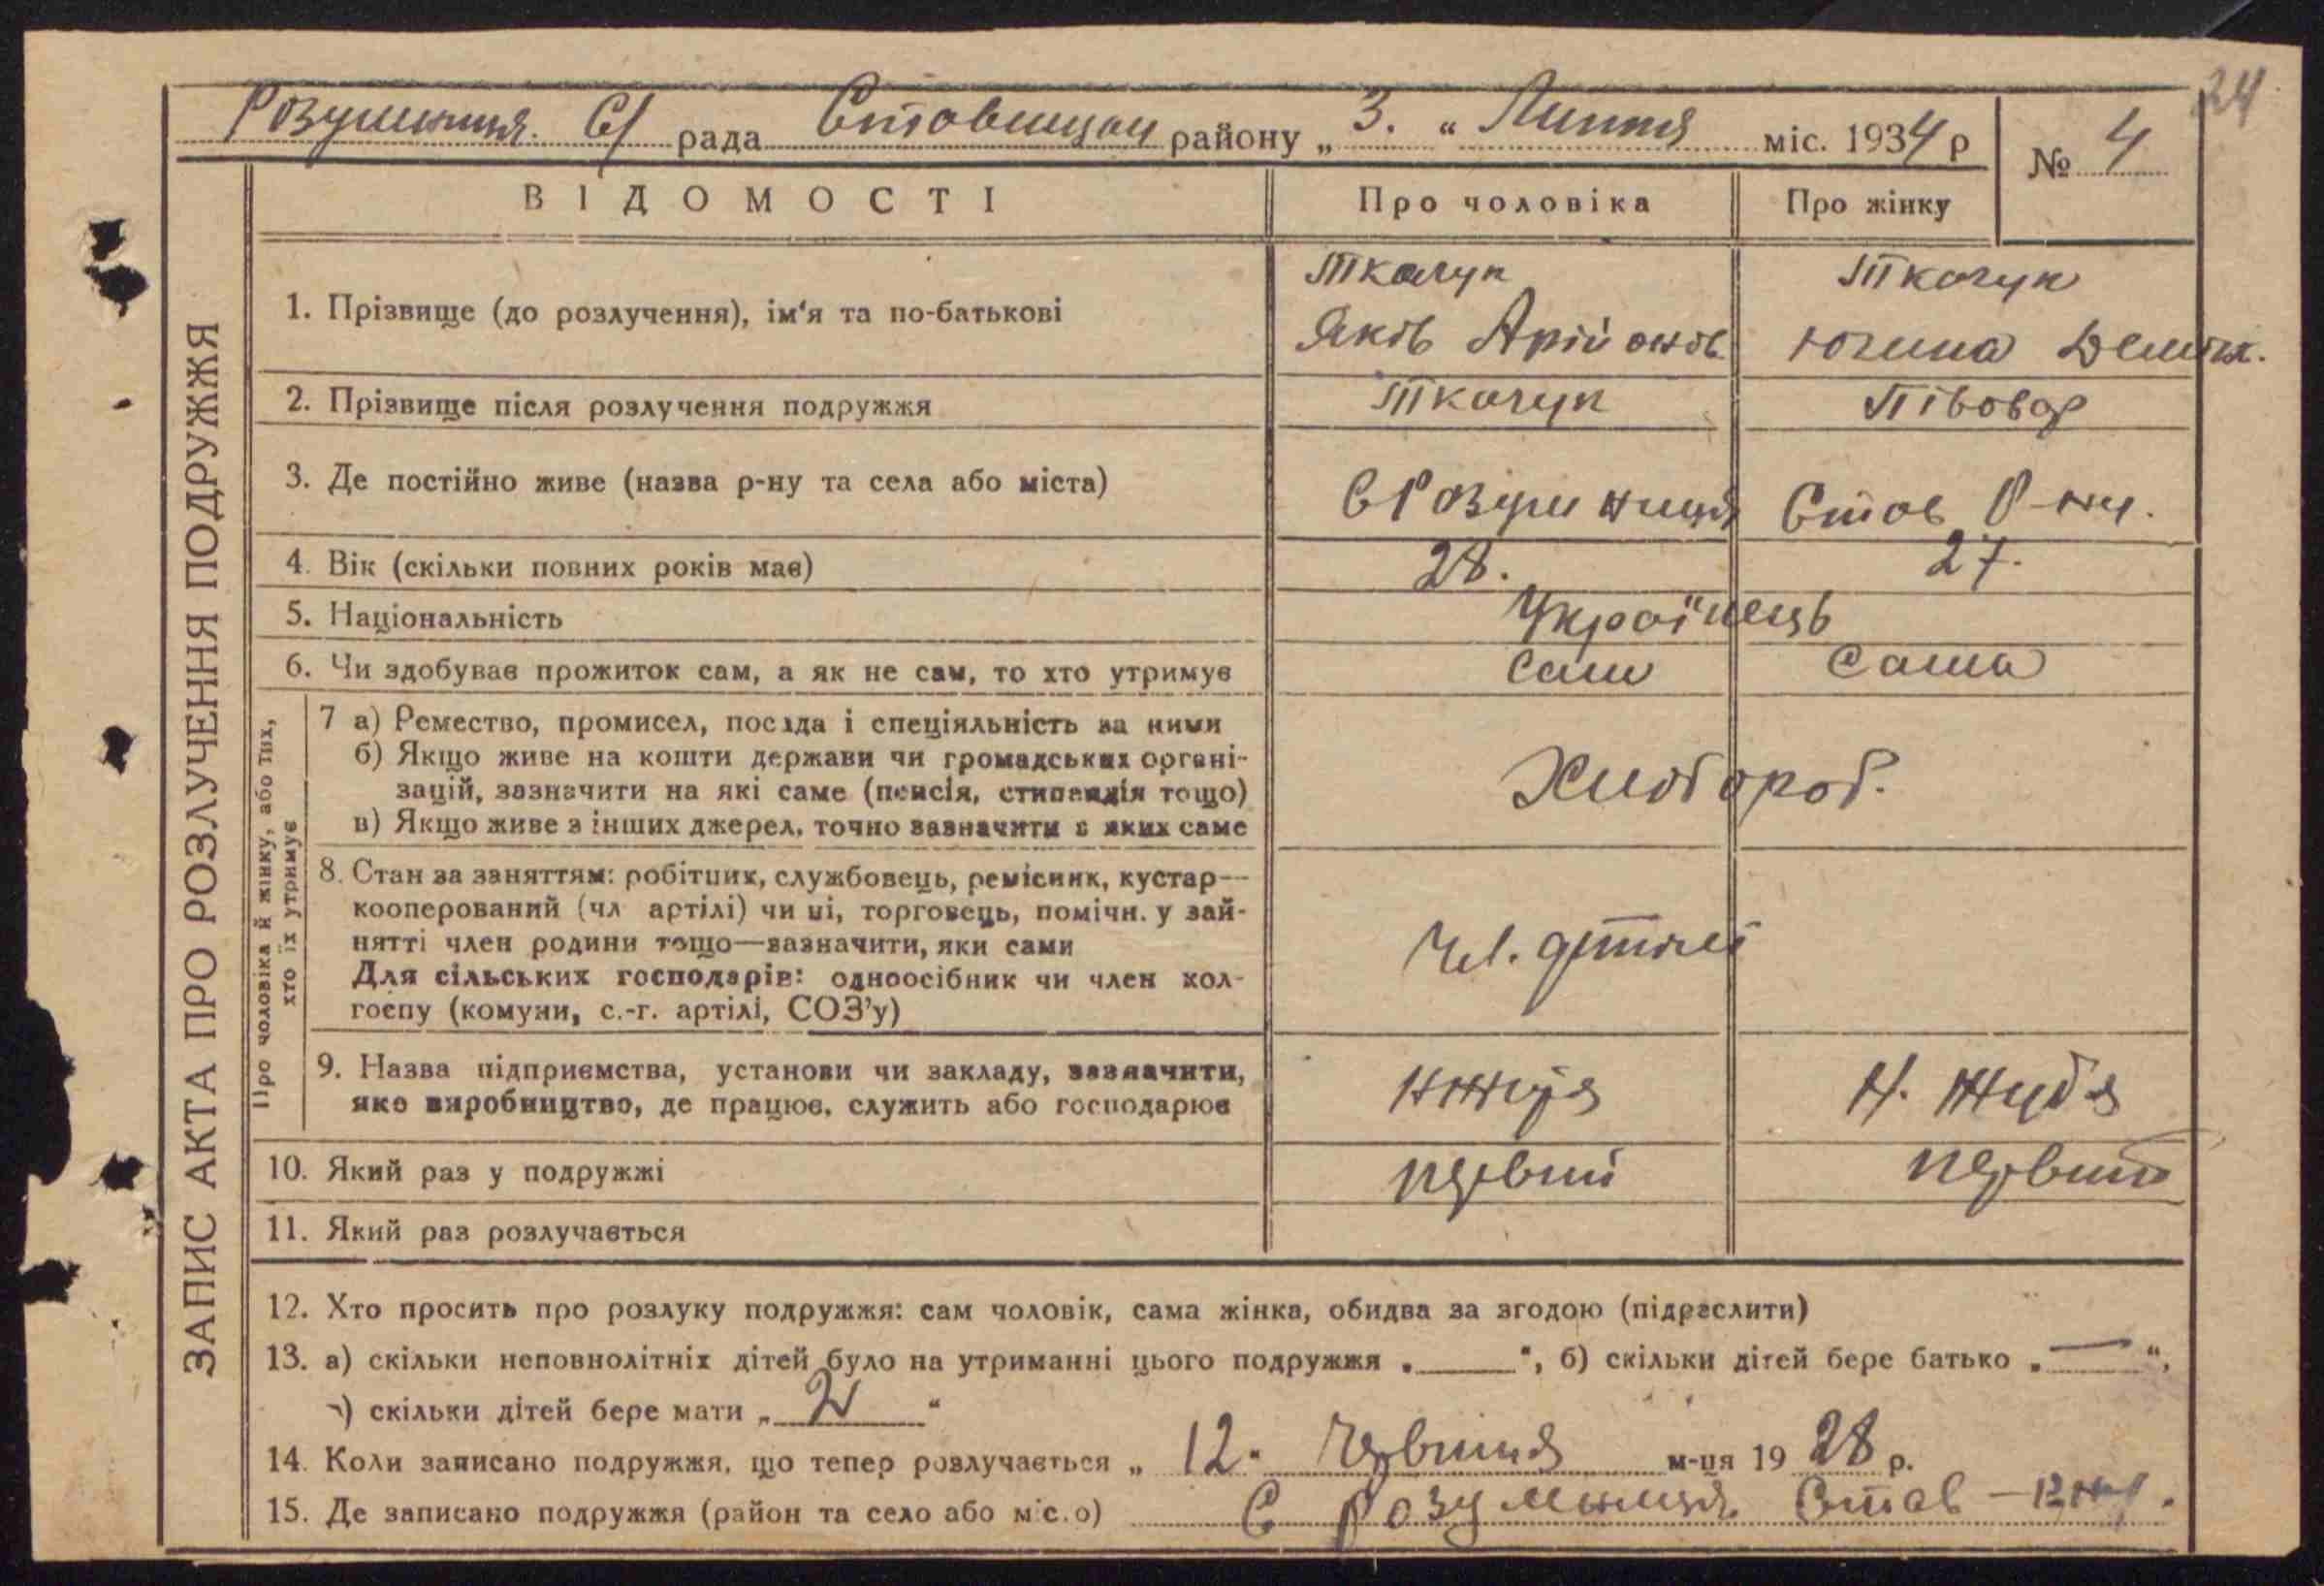 24
Розумниця. С/ рада Ставищан району „ 3. “ Липня міс. 1934 р № 4
ВІДОМОСТІ Про чоловіка Про жінку
ЗАПИС АКТА ПРО РОЗЛУЧЕННЯ ПОДРУЖЖЯ
Ткачук Ткачук
1. Прізвище (до розлучення), ім'я та по-батькові
Яків Арійонів
2. Прізвище після розлучення подружжя Ткачук Півовар
3. Де постійно живе (назва р-ну та села або міста) С Розумниця Став Р-ну.
4. Вік (скільки повних років має) 28. 27.
5. Національність Українець
6. Чи здобуває прожиток сам, а як не сам, то хто утримує Сам Сама
Про чоловіка й жінку, або тих,
хто їх утримує
7 а) Ремество, промисел, посада і спеціяльність за ними
б) Якщо живе на кошти держави чи громадських органі-
зацій, зазначити на які саме (пенсія, стипендія тощо) Хлібороб.
в) Якщо живе з інших джерел, точно зазначити з яких саме
8. Стан за заняттям: робітник, службовець, ремісник, кустар—
кооперований (чл артілі) чи ні, торговець, помічн. у зай-
нятті член родини тощо—зазначити, яки сами Чл.
Для сільських господарів: одноосібник чи член кол-
госпу (комуни, с.-г. артілі, СОЗ'у)
9. Назва підприємства, установи чи закладу, зазначити,
яке виробництво, де працює, служить або господарює
10. Який раз у подружжі первий первий
11. Який раз розлучається
12. Хто просить про розлуку подружжя: сам чоловік, сама жінка, обидва за згодою (підреслити)
13. а) скільки неповнолітніх дітей було на утриманні цього подружжя „ “, б) скільки дітей бере батько „ — “,
в) скільки дітей бере мати „ 2 “
14. Коли записано подружжя, що тепер розлучається „ 12. Червиня м-ця 19 28 р.
15. Де записано подружжя (район та село або міс.о) С Розумниця Став — Р-ну.